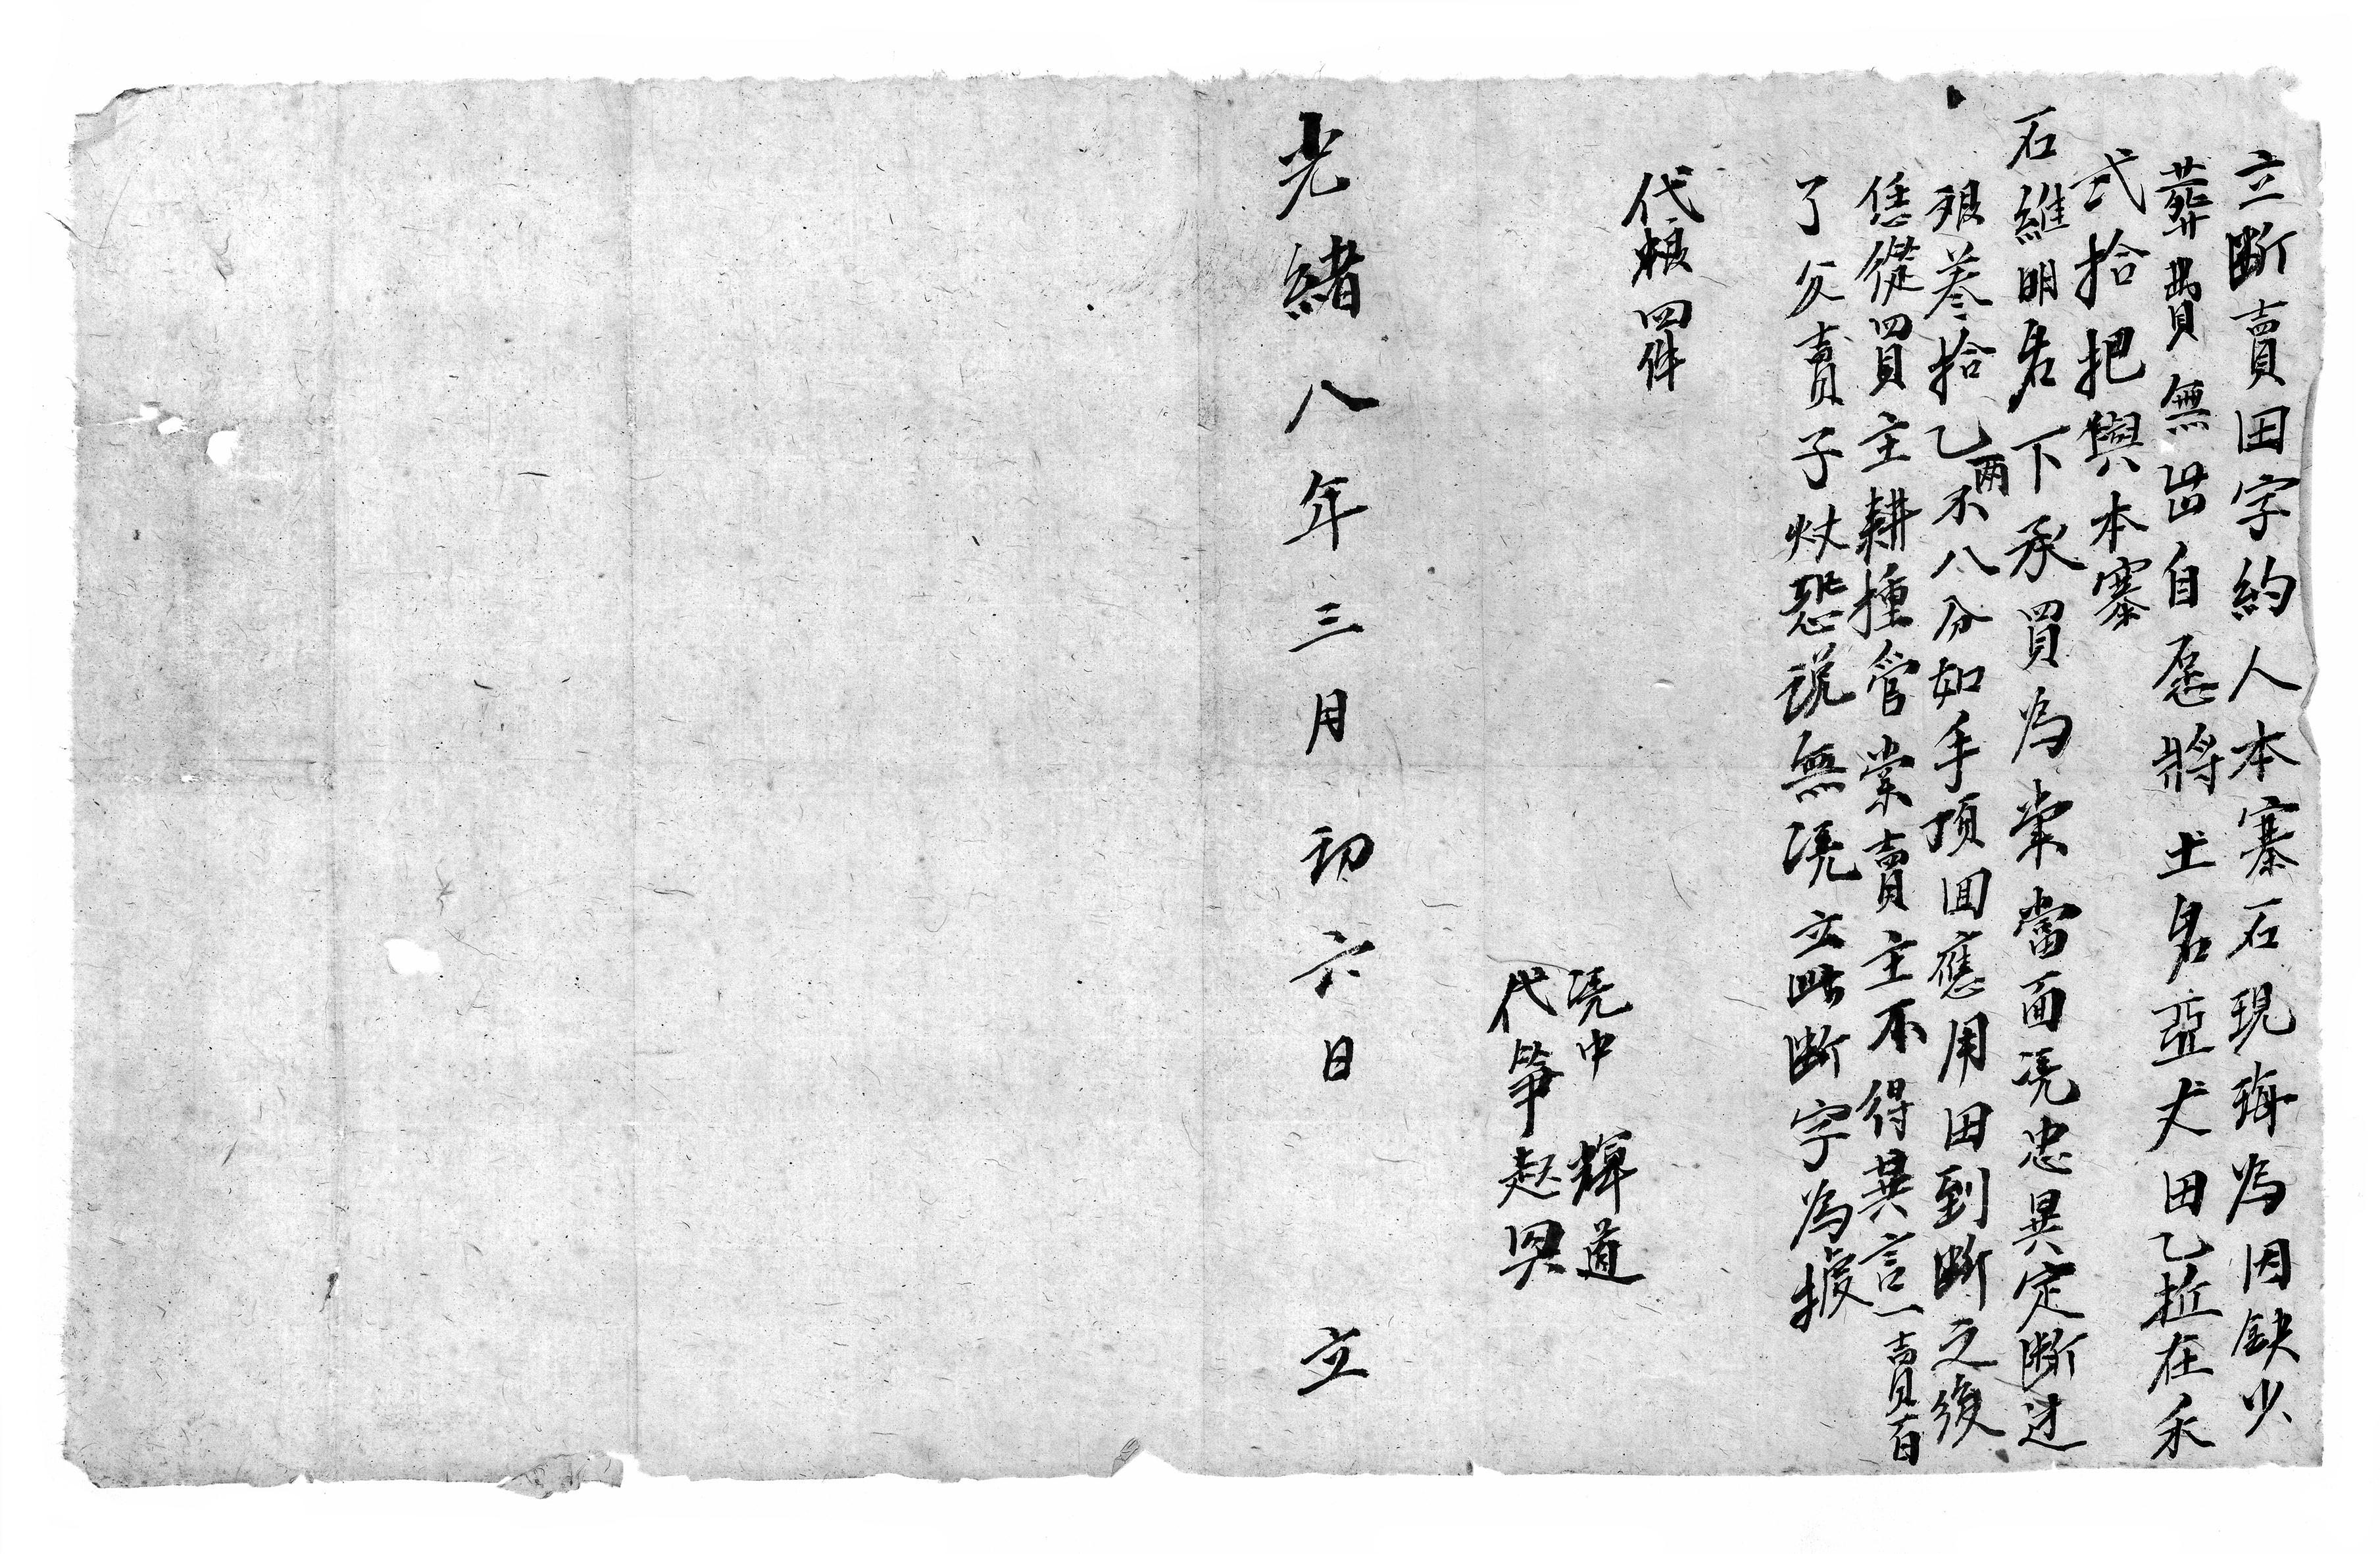 立斷賣田字約人本寨石現海為因缺少
葬費無出自愿將土名亞犬田乙坵在禾
弍拾把與本寨
石維明名下承買為業當面凴忠異定斷过
艮叁拾乙两不八分如手項回應用田到斷之後
恁從買主耕種管業賣主不得異言一賣百
了父賣子 恐説無凴立此斷字為據
代粮四件
凴中 輝道
代筆起
光緒八年三月初六日 立